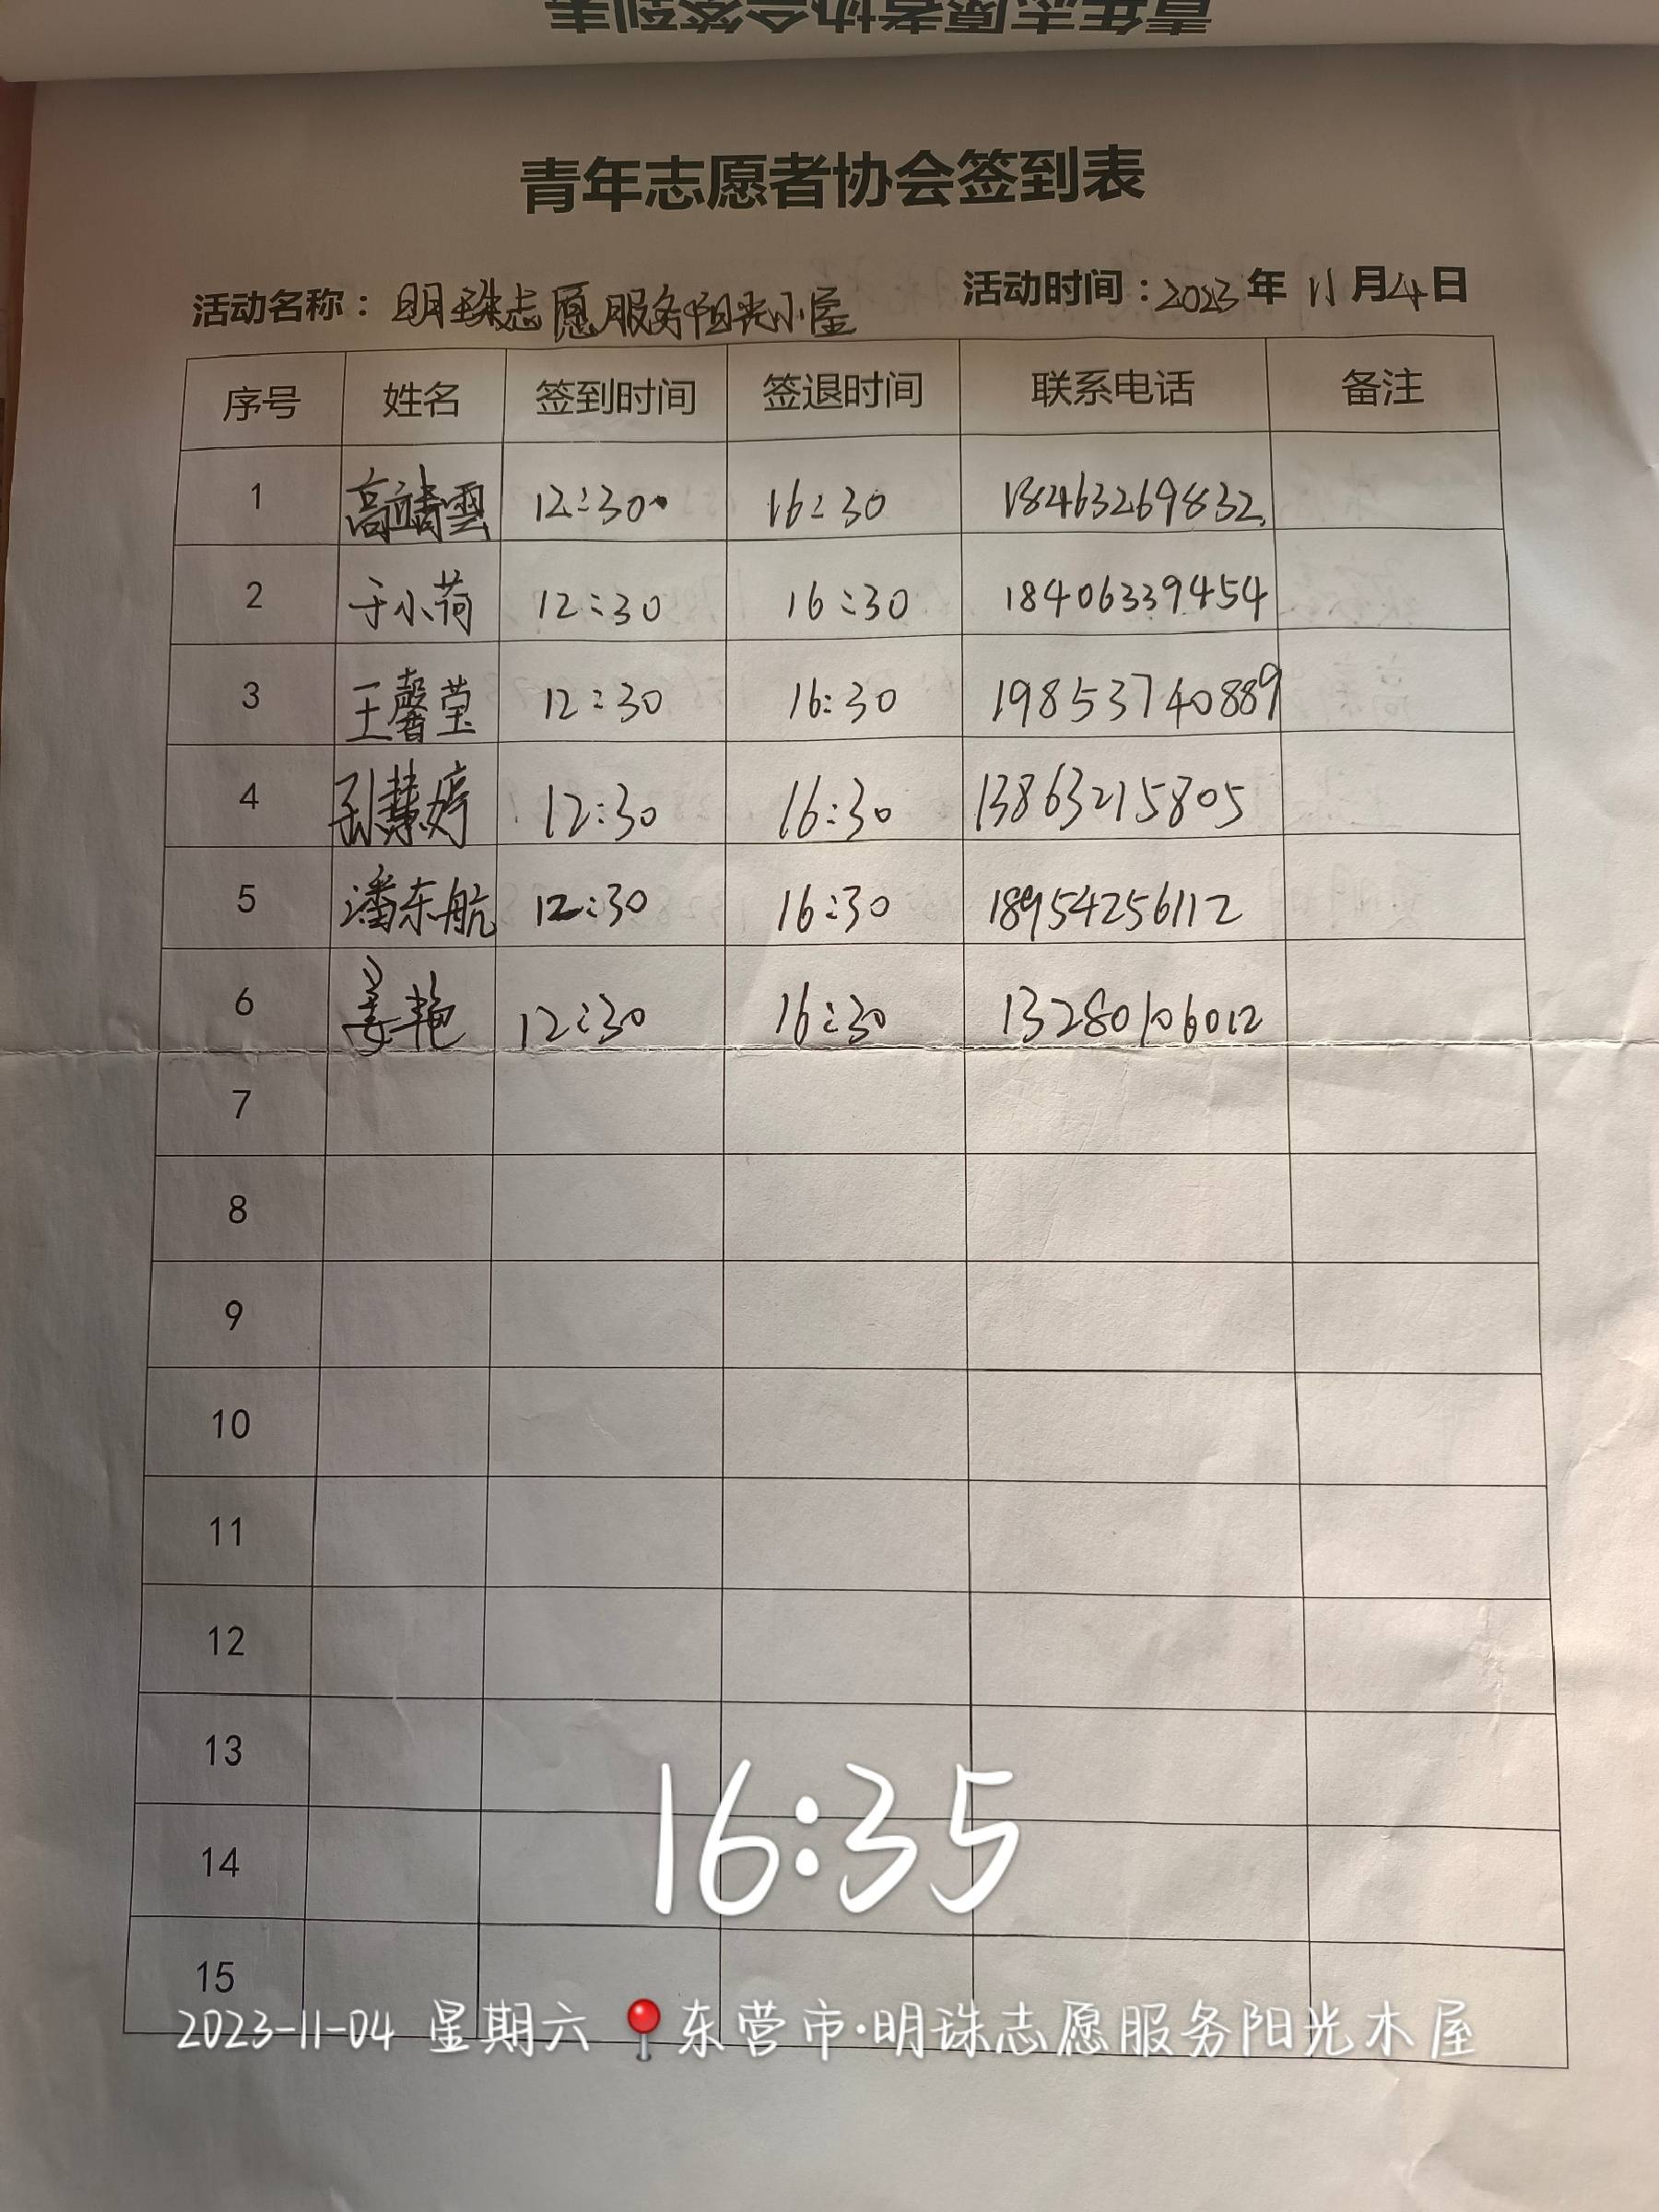 青年志愿者协会签到表
青年志愿者协会签到表
活动名称：明珠志愿服务阳光小屋 活动时间：2023年11月4日
序号 姓名 签到时间 签退时间 联系电话 备注
1 高靖雲 12:30 16:30 18463269832
2 于小荷 12:30 16:30 18406339454
3 王馨莹 12:30 16:30 19853740889
4 孙慧婷 12:30 16:30 13863215805
5 潘东航 12:30 16:30 18954256112
6 姜艳 12:30 16:30 13280106012
7
8
9
10
11
12
13
16:35
14
15
2023-11-04 星期六 东营市·明珠志愿服务阳光木屋